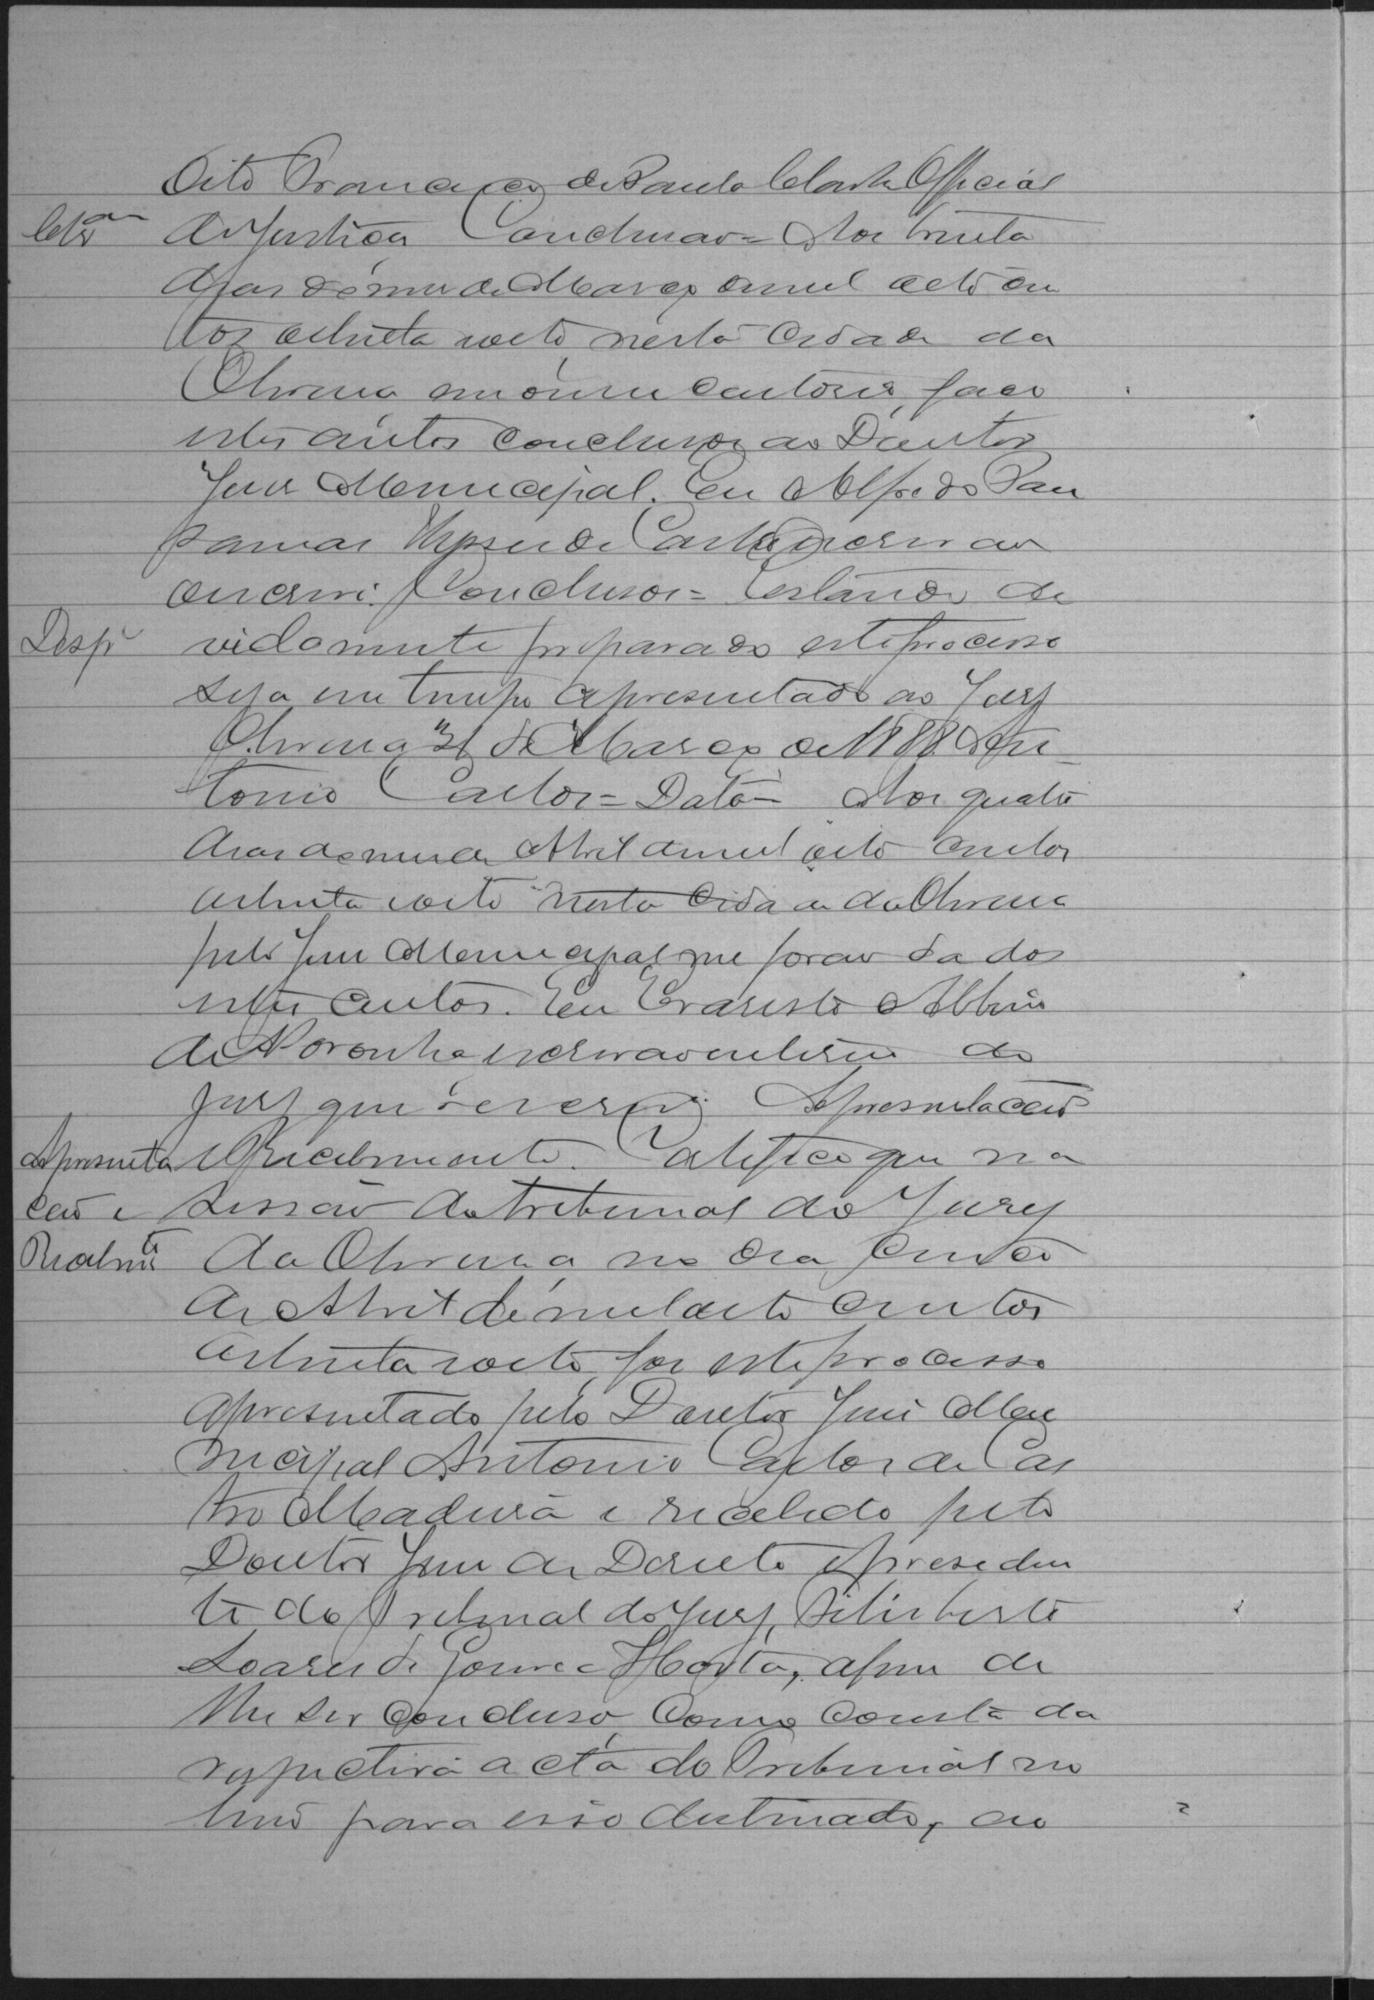 Oito Francisco de Paula Costa Official
Clsam de Justiça Conclusão = Aos trinta
dias do mez de Março de mil oito cen
tos oitenta e oito, nesta Cidade da
Oliveira em o meu cartorio, faço
estes autos conclusos ao Doutor
Juiz Municipal. Eu Alfredo
de Castro Escrivão
o escrevi. Conclusos = Estando de
Desp.º vidamente preparado este processo
seja em tempo apresentado ao Jury
Oliveira 31 de Março de 1888 An
tonio Carlos = Data = Aos quatro
dias do mez de Abril de mil oito centos
oitenta e oito nesta Cidade da Oliveira
pelo Juiz Municipal me forão dados
estes autos. Eu Evaristo Albino
de Noronha escrivão interino do
jury que o escrevi. Apresentação
Apresenta e Recebimento. Certifico que na
ção e sessão do tribunal do Jury
Recebmto da Oliveira no dia cinco
de Abril de mil oito centos
oitenta e oito, foi este processo
apresentado pelo Doutor Juiz Mu
nicipal Antonio Carlos de Cas
tro Madeira e recebido pelo
Doutor Juiz de Direito e presiden
te do Tribunal do Jury, Feliberto
Soares de Gouvea Horta, afim de
lhe ser concluso, como consta da
respectiva acta do Tribunal no
livro para isso destinado, do